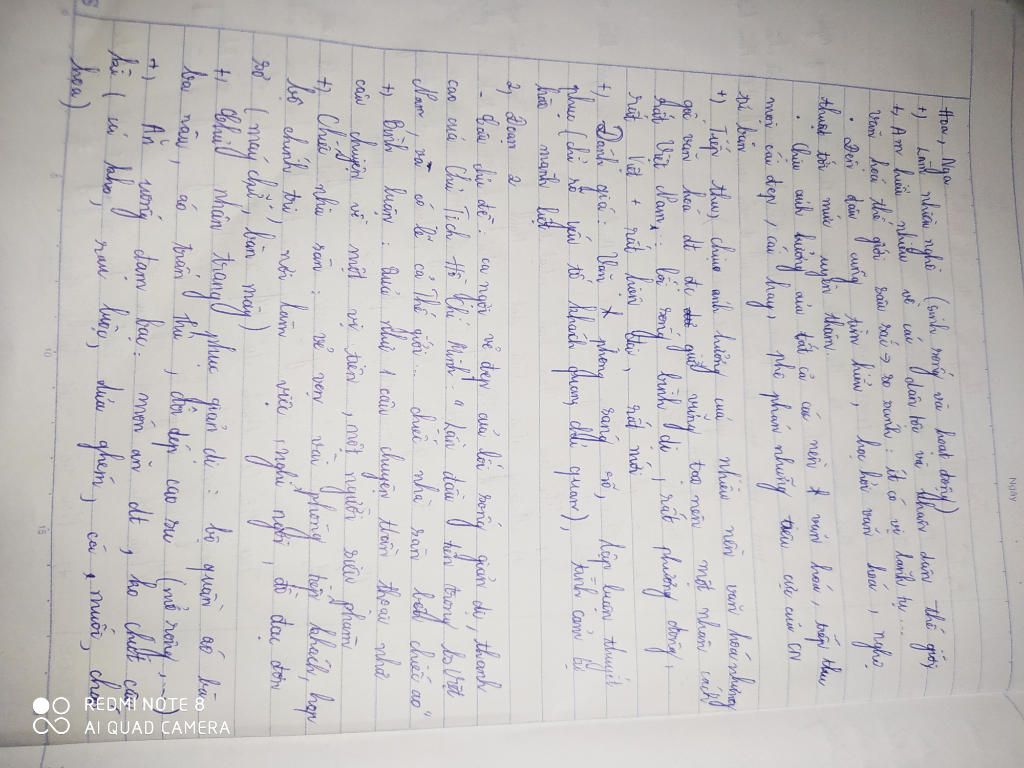 Hoa, Nga
+) Làm nhiều nghề (sinh sống và hoạt động)
+) Am hiểu nhiều về các dân tộc và nhân dân thế giới,
văn hoá thế giới sâu sắc → so sánh: ít có vị lãnh tụ ...
• Đến đâu cũng tìm hiểu, học hỏi văn hoá, nghệ
thuật tới mức uyên thâm...
• Chịu ảnh hưởng của tất cả các nền văn hoá, tiếp thu
mọi cái đẹp, cái hay, phê phán những tiêu cực của CN
tư bản
+) Tiếp thu, chịu ảnh hưởng của nhiều nền văn hoá nhưng
giữ vững tạo nên một nhân cách
rất Việt Nam: lối sống bình dị, rất phương đông,
rất Việt + rất hiện đại, rất mới
+) Đánh giá: Văn phong sáng rõ, lập luận thuyết
phục (chỉ rõ yếu tố khách quan, chủ quan), tình cảm
mãnh liệt
2, Đoạn 2
- Câu chủ đề: ca ngợi vẻ đẹp của lối sống giản dị, thanh
cao của Chủ Tịch Hồ Chí Minh: "Lần đầu tiên trong l.s Việt
Nam, và có lẽ cả thế giới... chiếc nhà sàn chiếc ao"
+) Bình luận: Quả như 1 câu chuyện thần thoại như
câu chuyện về một vị tiên, một người siêu phàm
+) Chiếc nhà sàn: vẻn vẹn vài phòng tiếp khách, họp
bộ chính trị, nơi làm việc, nghỉ ngơi, đồ đạc đơn
sơ (máy chữ, bàn mây)
+) trang phục giản dị: bộ quần áo bà
ba nâu, áo trấn thủ, đôi dép cao su
+) Ăn uống đạm bạc: món ăn dt, ko chút cầu
kì (cá kho, rau luộc, dưa ghém, cà muối, cháo
hoa)
Ngày
REDMI NOTE 8
AI QUAD CAMERA